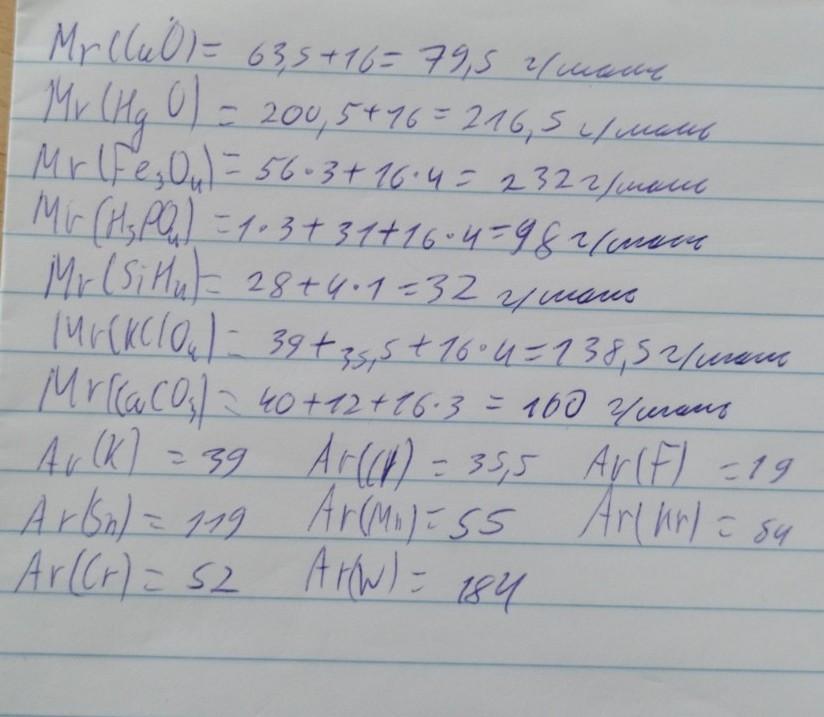 Mr(CuO) = 63,5+16 = 79,5 г/моль
Mr(HgO) = 200,5+16 = 216,5 г/моль
Mr(Fe₃O₄) = 56·3+16·4 = 232 г/моль
Mr(H₃PO₄) = 1·3+31+16·4=98 г/моль
Mr(SiH₄) = 28+4·1=32 г/моль
Mr(KClO₄) = 39+35,5+16·4=138,5 г/моль
Mr(CaCO₃) = 40+12+16·3 = 100 г/моль
Ar(K) = 39 Ar(Cl) = 35,5 Ar(F) = 19
Ar(Sn) = 119 Ar(Mn) = 55 Ar(Kr) = 84
Ar(Cr) = 52 Ar(W) = 184